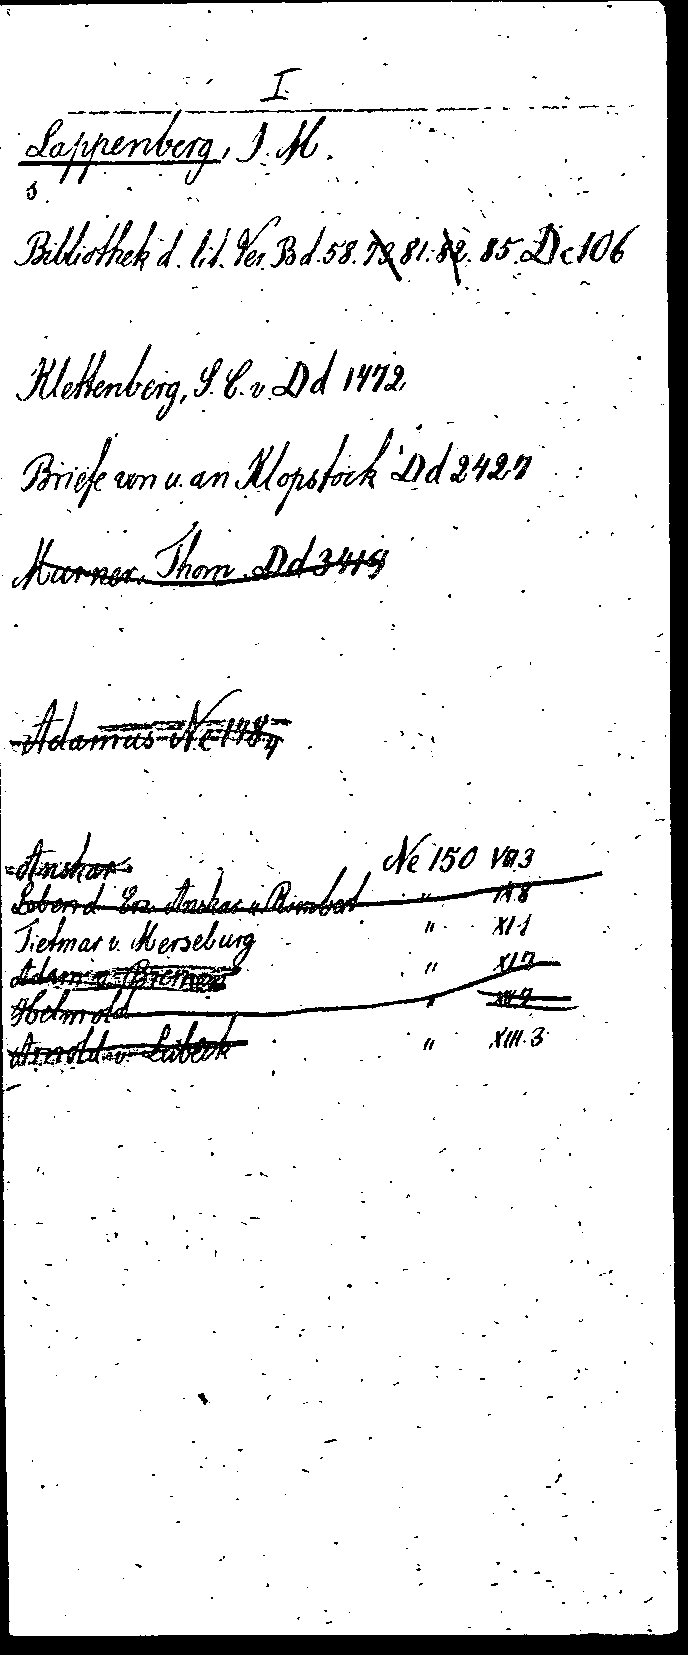 I
Lappenberg, J. M.
s.
Bibliothek d. lit. Ver. Bd. 58. 79 81. 82. 85. Dc 106
Klettenberg, S. C. v. Dd 1472
Briefe von u. an Klopstock Dd 2427
Murner, Thom. Dd 3419
Adamus Ne 1484
Anskar Ne 150 VII.3
Leben d. Erz. Anskar u. Rimbert " IX 8
Tietmar v. Merseburg " XI.1
Adam v. Bremen " XI 7
Helmold "
Arnold v. Lübeck " XIII.3